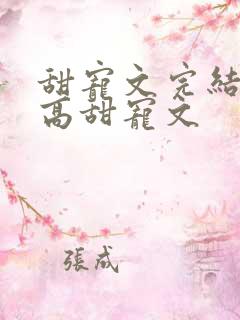 甜寵文完結
高甜寵文
張成